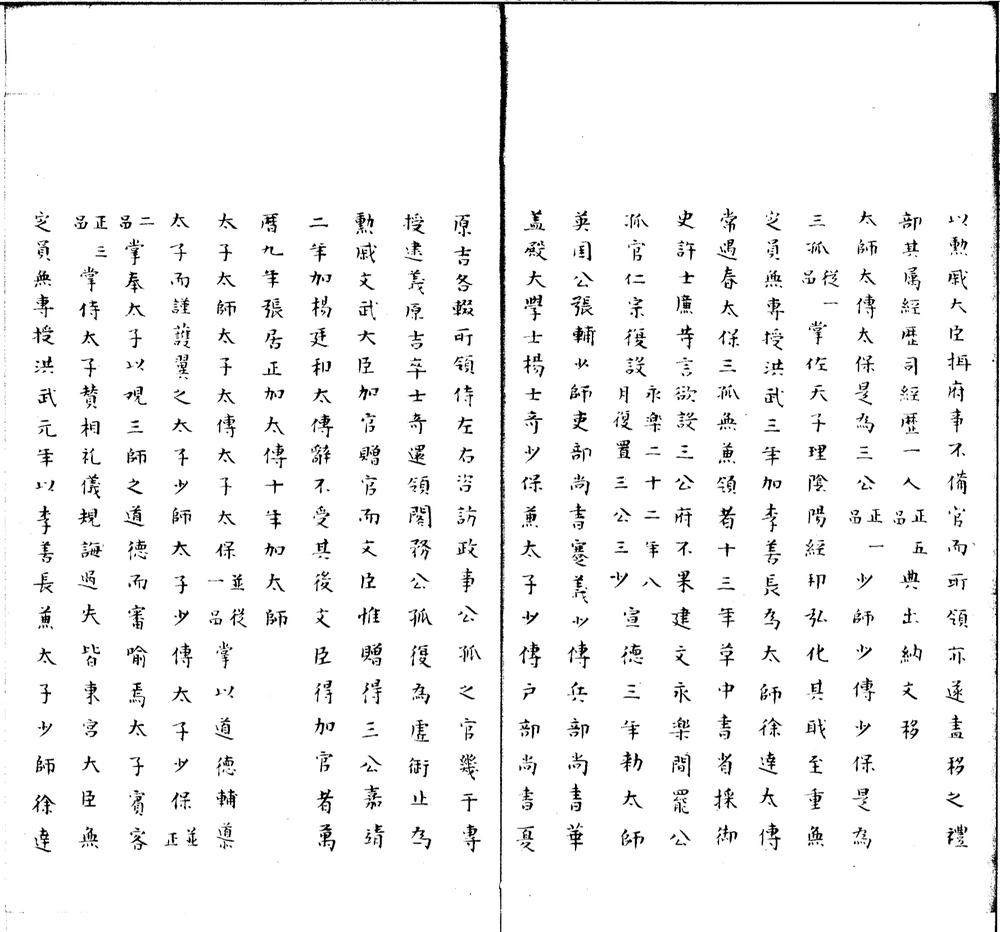 以勲戚大臣揖府事不備官而所領亦遂盡移之禮
部其属經歴司經歴一人正五品典出納文移
太師太傳太保是為三公正一品少師少傳少保是為
三孤從一品掌佐天子理陰陽經邦弘化其戢至重無
定員無專授洪武三年加李善長為太師徐達太傳
常遇春太保三孤無蕙領者十三年革中書省採御
史許士廉等言欲設三公府不果建文永樂間罷公
孤官仁宗復設永樂二十二年八月復置三公三少宣德三年勅太師
英国公張輔少師吏部尚書蹇義少傳兵部尚書華
盖殿大學士楊士竒少保蕙太子少傳户部尚書夏
原吉各輟所領侍左右咨訪政事公孤之官幾于專
授逮義原吉卒士竒還領閣務公孤復為虛銜止為
勲戚文武大臣加官贈官而文臣惟贈得三公嘉靖
二年加楊廷和太傳辭不受其後文臣得加官者萬
暦九年張居正加太傳十年加太師
太子太師太子太傳太子太保並從一品掌以道德輔導
太子而謹護翼之太子少師太子少傳太子少保並正
二品掌奉太子以覌三師之道德而審喻焉太子賓客
正三品掌侍太子賛相礼儀規誨過失皆東宫大臣無
定員無專授洪武元年以李善長蕙太子少師徐達